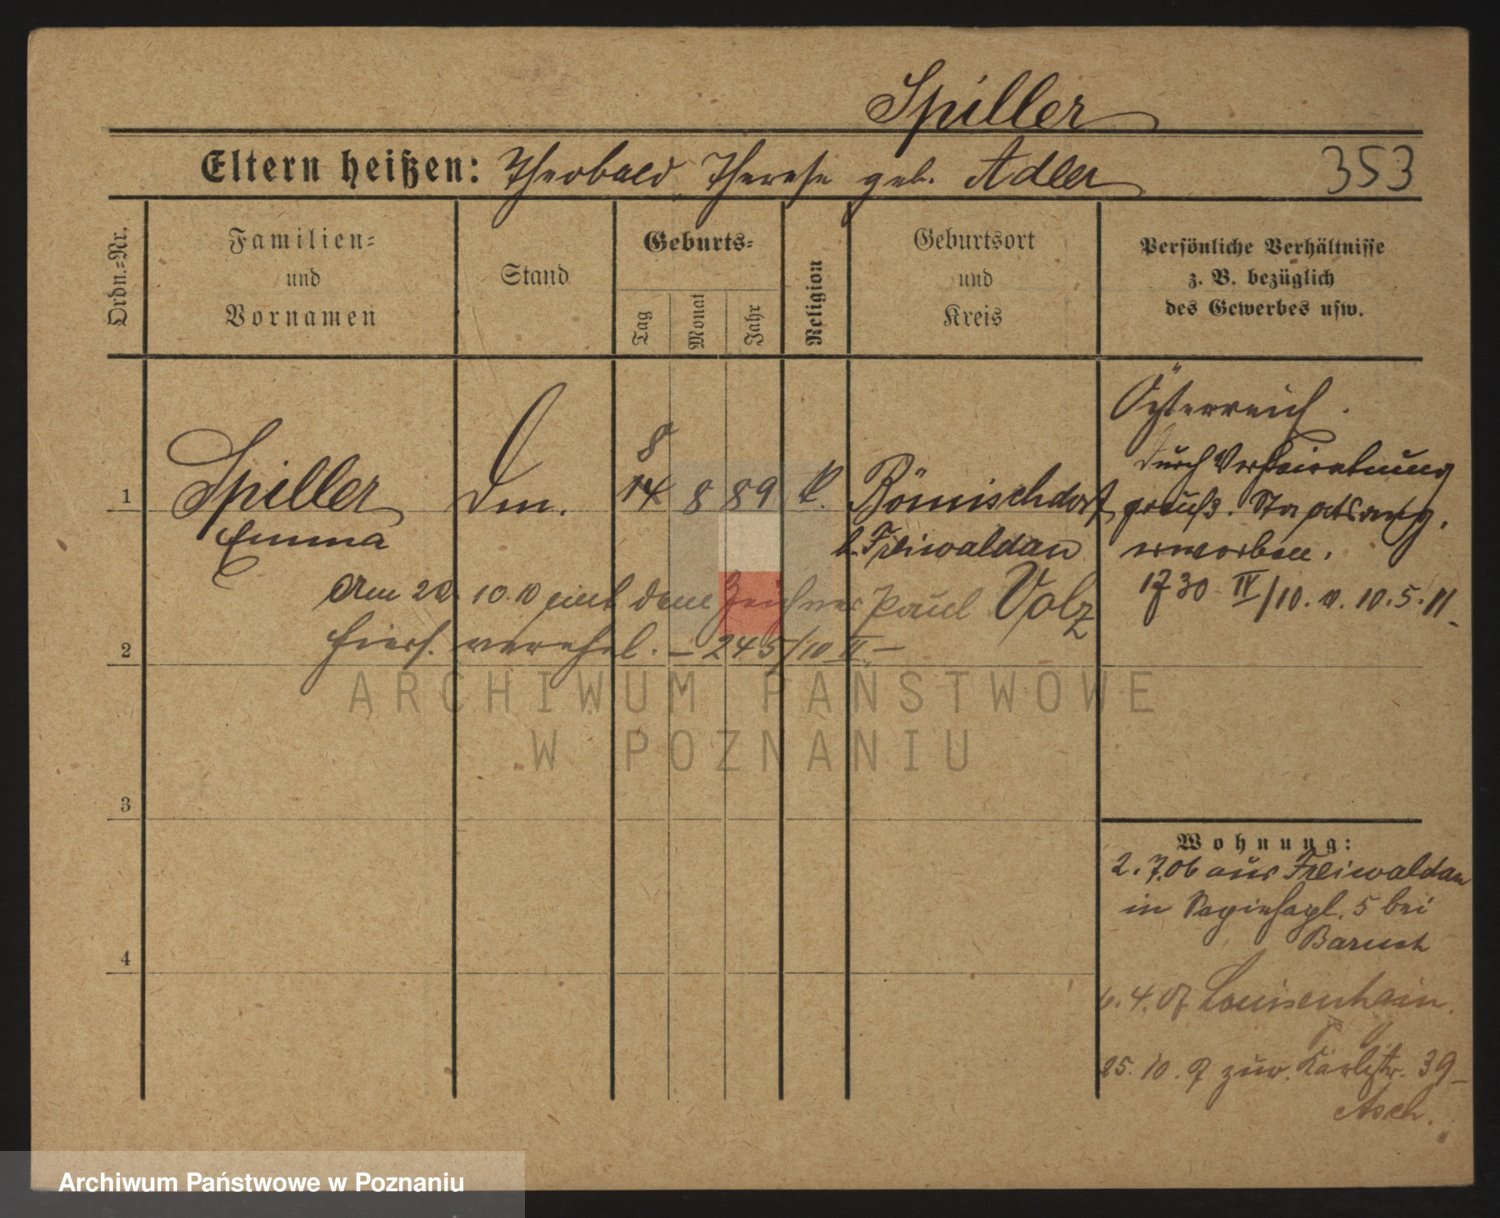 Spiller
Eltern heißen: Theobald, Therese geb. Adler 353
Ordn.-Nr.
Familien- und Vornamen
Stand
Geburts-
Tag
Monat
Jahr
Religion
Geburtsort und Kreis
Persönliche Verhältnisse
z. B. bezüglich
des Gewerbes usw.
Österreich.
8
1 Spiller 14 8 89 k. Römischdorf
Emma b. Freiwaldau
durch Verheiratung
preuß. Staatsang.
erworben.
1730 IV/10. v. 10.5.11
Am 10 10 mit dem Zeichner Paul Volz
2 hiers. verehel. - 245/10 II -
3
4
Wohnung:
2.7.06 aus Freiwaldau
in 5 bei
Baruch
6.4.07 Louisenhain
25.10.7 zur. Karlstr. 39
Asch.
ARCHIWUM PAŃSTWOWE
W POZNANIU
Archiwum Państwowe w Poznaniu